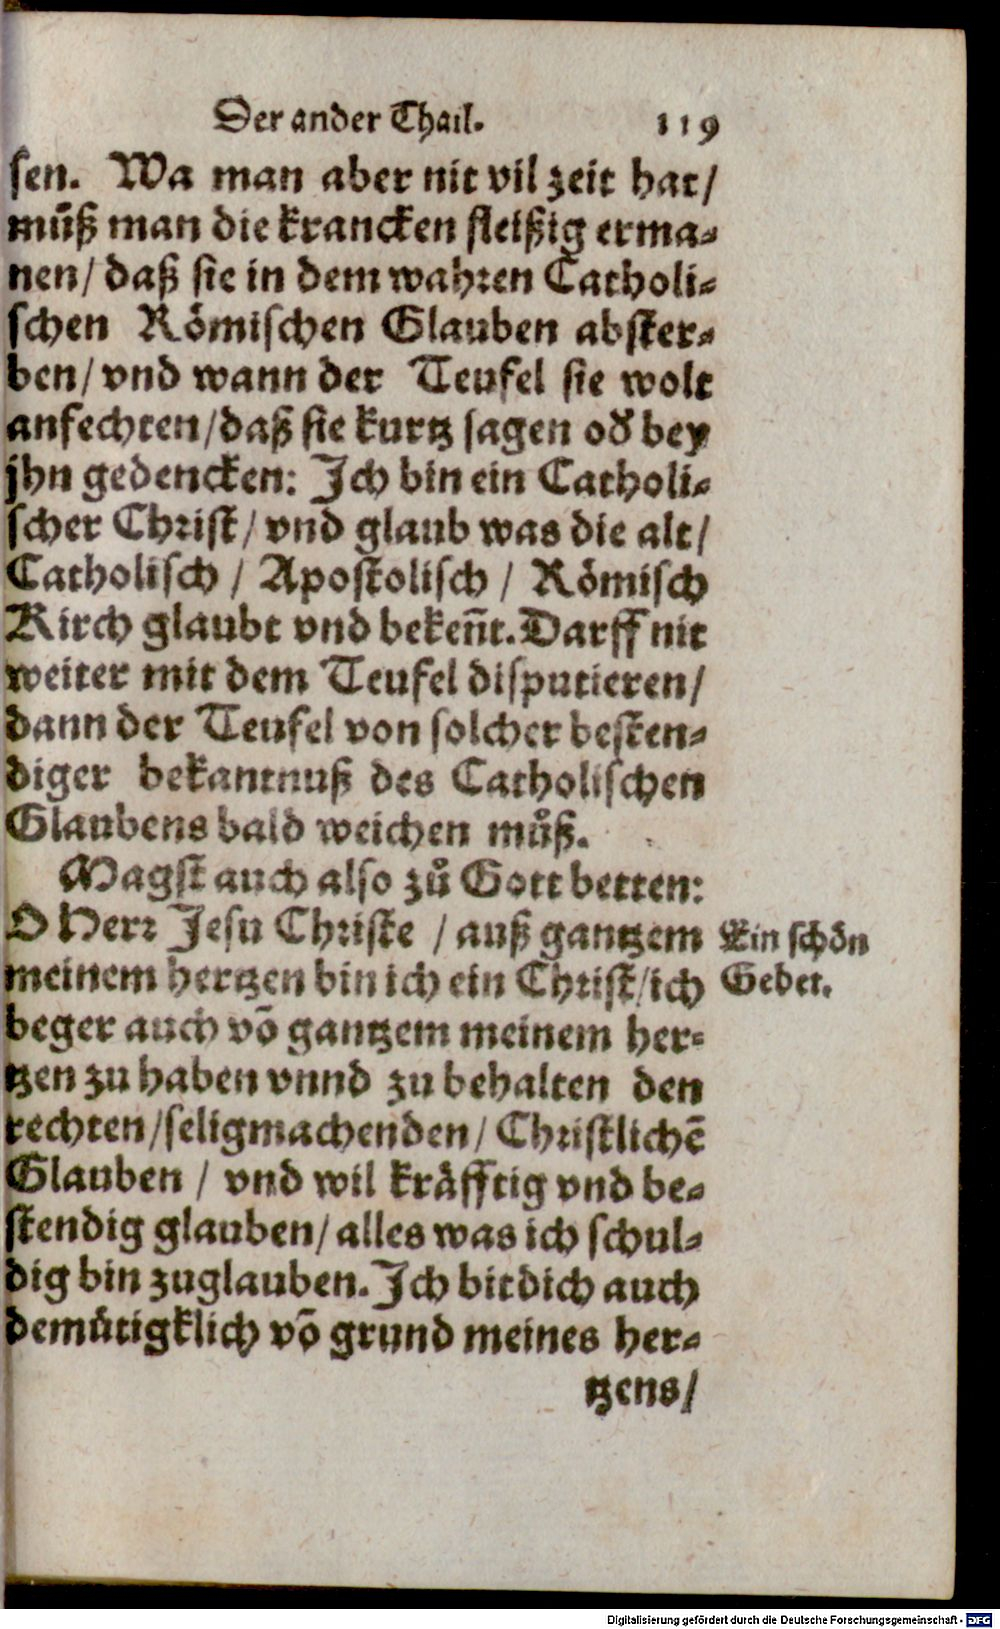 Der ander Thail. 119
sen. Wa man aber nit vil zeit hat/
můß man die krancken fleißig erma-
nen/ daß sie in dem wahren Catholi-
schen Römischen Glauben abster-
ben/ vnd wann der Teufel sie wolt
anfechten/daß sie kurtz sagen oď bey
jhn gedencken: Ich bin ein Catholi-
scher Christ/ vnd glaub was die alt/
Catholisch / Apostolisch / Römisch
Kirch glaubt vnd bekeñt. Darff nit
weiter mit dem Teufel disputieren/
dann der Teufel von solcher besten-
diger bekantnuß des Catholischen
Glaubens bald weichen můß.
Magst auch also zů Gott betten:
O Herr Jesu Christe / auß gantzem
Ein schön
meinem hertzen bin ich ein Christ/ich
Gebet.
beger auch võ gantzem meinem her-
tzen zu haben vnnd zu behalten den
rechten/seligmachenden/ Christlichẽ
Glauben / vnd wil kräfftig vnd be-
stendig glauben/ alles was ich schul-
dig bin zuglauben. Ich bit dich auch
demütigklich võ grund meines her-
tzens/
Digitalisierung gefördert durch die Deutsche Forschungsgemeinschaft - DFG